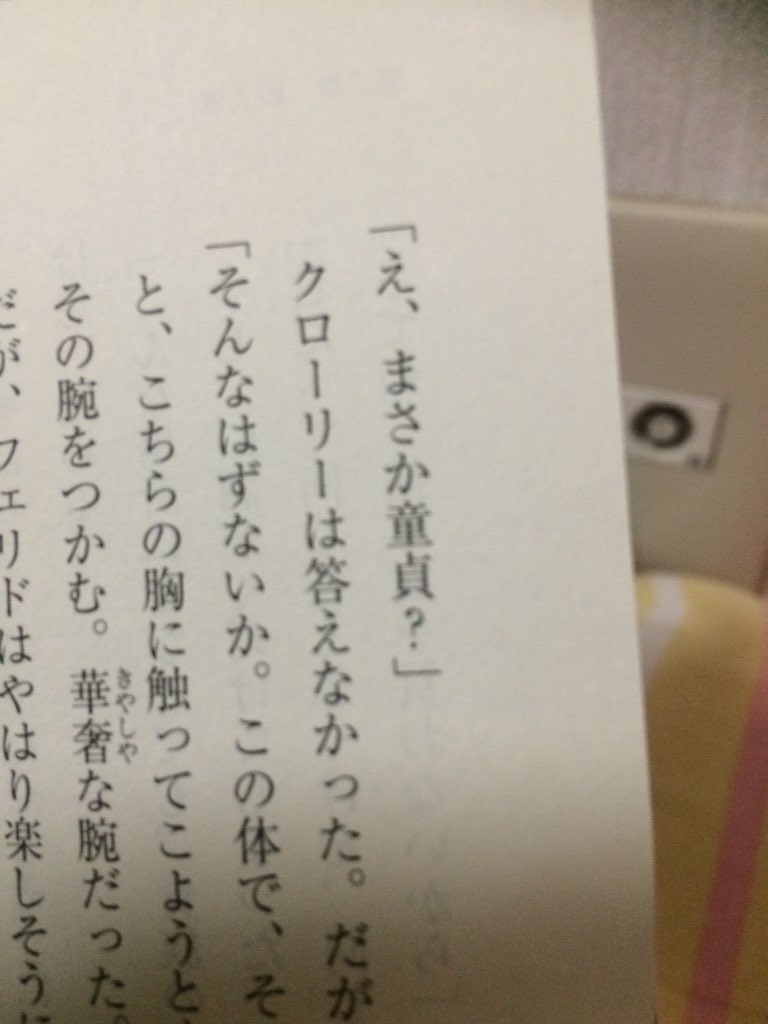 「え、まさか童貞？」
クローリーは答えなかった。だが
「そんなはずないか。この体で、そ
と、こちらの胸に触ってこようと
その腕をつかむ。華奢な腕だった。
きやしや
だが、フェリドはやはり楽しそうに